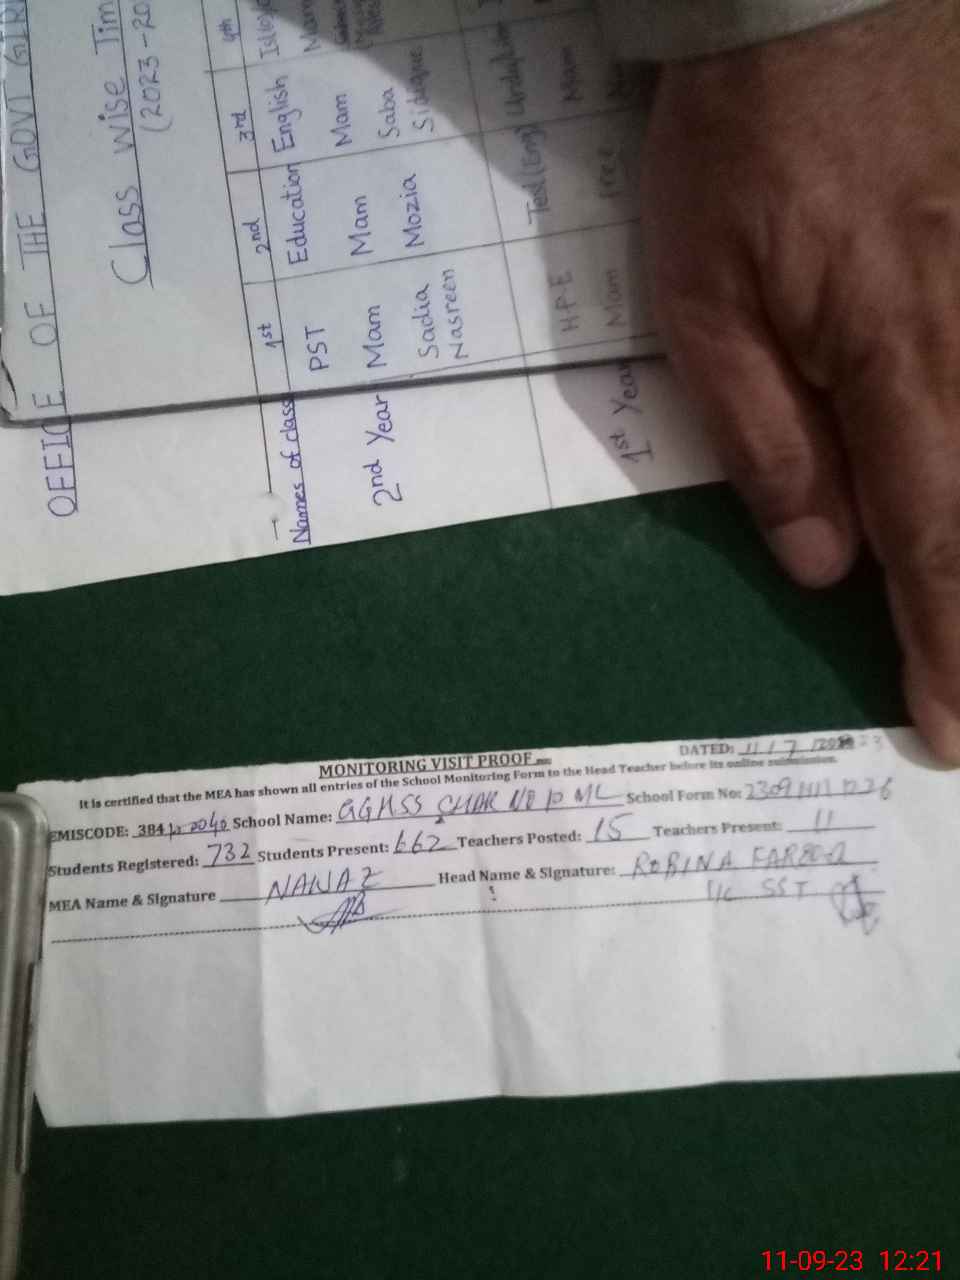 OFFICE OF THE GOVT GIR
Class wise Tim
(2023-20
1st 2nd 3rd 4th
Names of class PST Education English
2nd Year Mam Mam Mam
Sadia Mozia Saba
Nasreen Siddique
H.P.E Test(Eng)
1st Year Mam Free Mam
MONITORING VISIT PROOF
DATED: 11/
It is certified that the MEA has shown all entries of the School Monitoring Form to the Head Teacher before its online submission.
EMISCODE: School Name: GGHSS CHAK NO 10 ML School Form No:
Students Registered: 732 Students Present: 662 Teachers Posted: 15 Teachers Present: 11
MEA Name & Signature NAWAZ Head Name & Signature: ROBINA FAROOQ
SST
11-09-23 12:21